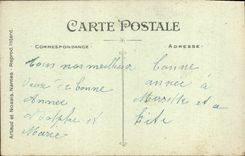 CARTE POSTALE
CORRESPONDANCE
ADRESSE
Tous nos meilleur
vœux de bonne
Année
Adolphe et
Marie
bonne
année à
et a
Artaud et Nozais. Nantes - Reprod. Interd.